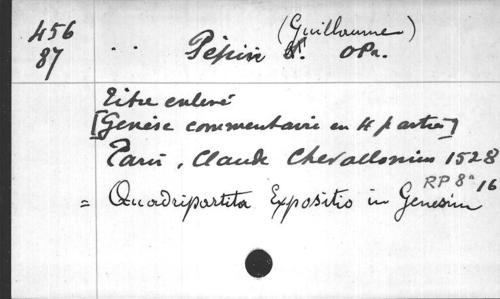 456
87
(Guillaume)
Pépin OPu.
Titre enlevé
[Genèse commentaire en 4 parties]
Paris, Claude Chevallonius 1528
RP 8° 16
= Quadripartita Expositio in Genesim